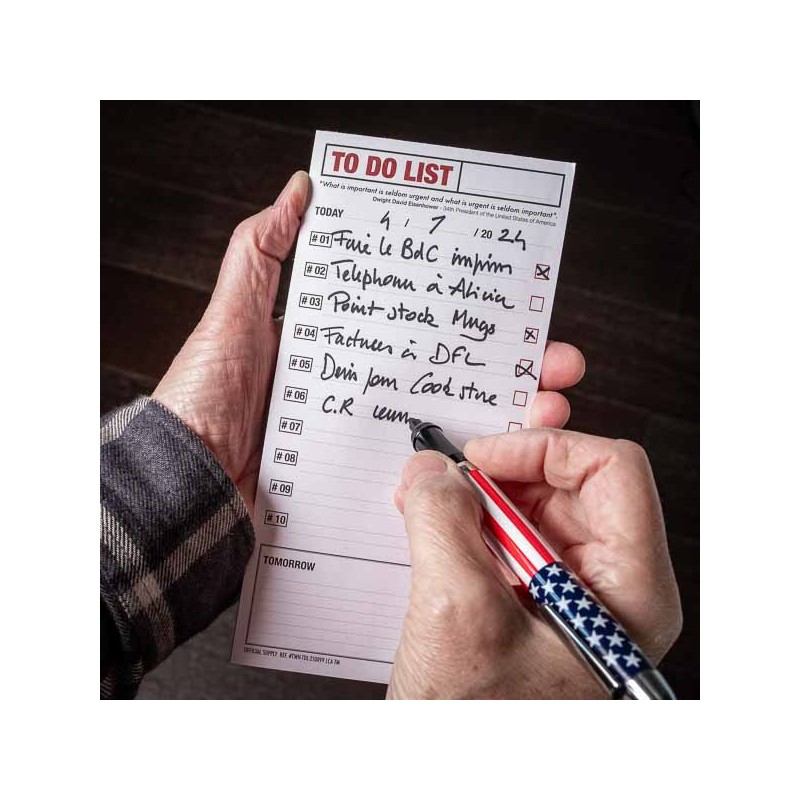 TO DO LIST
"What is important is seldom urgent and what is urgent is seldom important".
Dwight David Eisenhower - 34th President of the United States of America
TODAY 4 / 7 / 20 24
#01 Faire le BdC imprim
#02 Telephoner à Alicia
#03 Point stock Mugs
#04 Factures à DFL
#05 Devis pour Cook store
#06 C.R
#07
#08
#09
#10
TOMORROW
OFFICIAL SUPPLY REF.